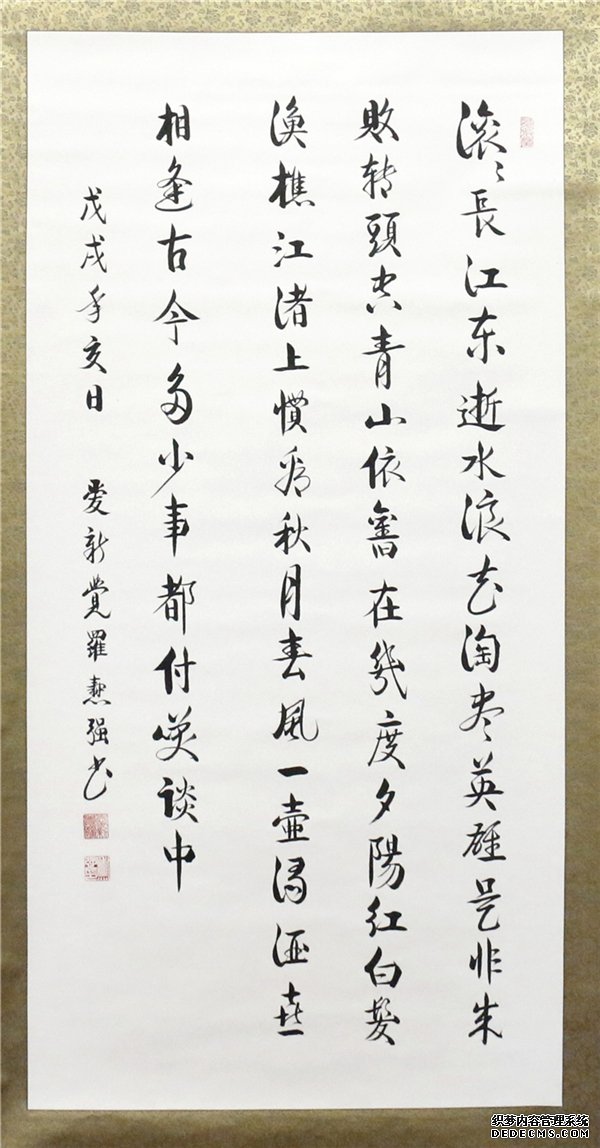 滚々長江东逝水浪花淘尽英雄是非成
败转頭空青山依舊在幾度夕陽红白髮
渔樵江渚上慣看秋月春風一壶濁酒喜
相逢古今多少事都付笑谈中
戊戌年亥日 愛新覺羅强书
织梦内容管理系统
DEDECMS.COM